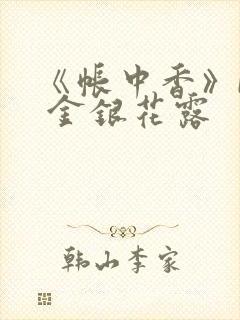 《帐中香》
金银花露
韩山李家